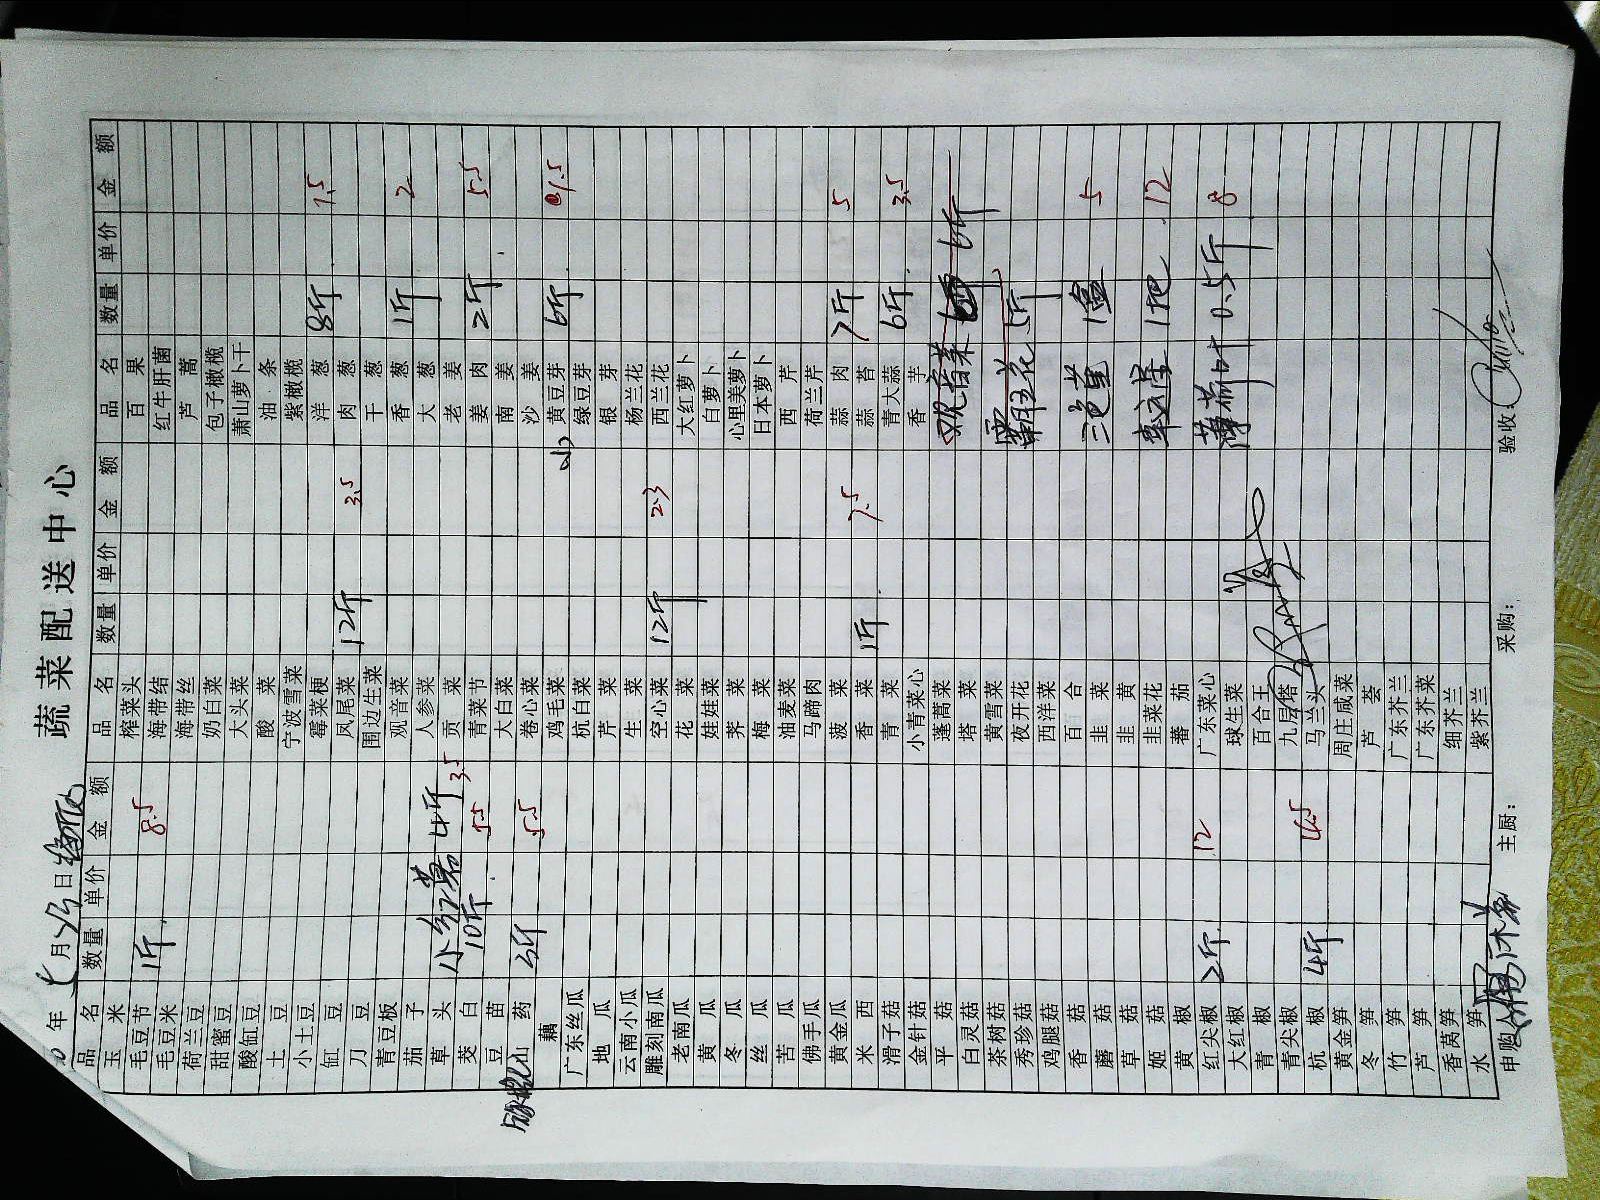 蔬菜配送中心
年 七月 日
品名 数量 单价 金额 品名 数量 单价 金额 品名 数量 单价 金额
玉米 榨菜头 百果
毛豆节 1斤 8.5 海带结 红牛肝菌
毛豆米 海带丝 芦蒿
荷兰豆 奶白菜 包子橄榄
甜蜜豆 大头菜 萧山萝卜干
酸缸豆 酸菜 油条
土豆 宁波雪菜 紫橄榄
小土豆 霉菜梗 洋葱 8斤 7.5
缸豆 凤尾菜 12斤 3.5 肉葱
刀豆 围边生菜 干葱
青豆板 观音菜 香葱 1斤 2
茄子 人参菜 大葱
草头 小红 4斤 3.5 贡菜 老姜
茭白 10斤 5.5 青菜节 姜肉 2斤 5.5
豆苗 大白菜 南姜
山药 3斤 5.5 卷心菜 沙姜
藕 鸡毛菜 小黄豆芽 6斤 1.5
广东丝瓜 杭白菜 绿豆芽
地瓜 芹菜 银芽
云南小瓜 生菜 杨兰花
雕刻南瓜 空心菜 12斤 2.3 西兰花
老南瓜 花菜 大红萝卜
黄瓜 娃娃菜 白萝卜
冬瓜 荠菜 心里美萝卜
丝瓜 梅菜 日本萝卜
苦瓜 油麦菜 西芹
佛手瓜 马蹄肉 荷兰芹
黄金瓜 菠菜 蒜肉 7斤 5
米西 香菜 1斤 7.5 蒜苔
滑子菇 青菜 青大蒜 6斤 3.5
金针菇 小青菜心 香芋
平菇 蓬蒿菜 观音菜 6斤
白灵菇 塔菜
茶树菇 黄雪菜
秀珍菇 夜开花 霸王花 5斤
鸡腿菇 西洋菜
香菇 百合
蘑菇 韭菜 三色堇 1盒 5
草菇 韭黄
姬菇 韭菜花 1把 12
黄椒 蕃茄
红尖椒 2斤 12 广东菜心 薄荷叶 0.5斤 8
大红椒 球生菜
青椒 百合王
青尖椒 九层塔
杭椒 4斤 6.5 马兰头
黄金笋 周庄咸菜
冬笋 芦荟
竹笋 广东芥兰
芦笋 广东芥菜
香莴笋 细芥兰
水笋 紫芥兰
申购: 主厨: 采购: 验收: